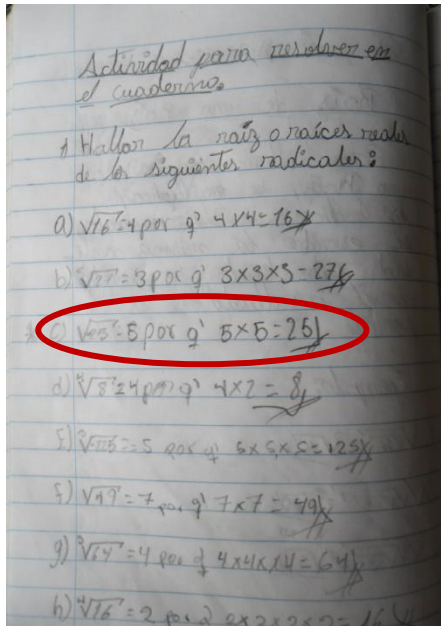 Actividad para resolver en
el cuaderno.
1 Hallar la raíz o raíces reales
de los siguientes radicales:
a) √16 = 4 por q' 4x4=16
b) ³√27 = 3 por q' 3x3x3=27
c) 5 por q' 5x5=25
d) 4 por q' 4x2 = 8
5 por q' 5x5x5=125
f) √49 = 7 por q' 7x7 = 49
g) ³√64 = 4 por q' 4x4x4=64
h) ⁴√16 = 2 por q' 2x2x2x2=16